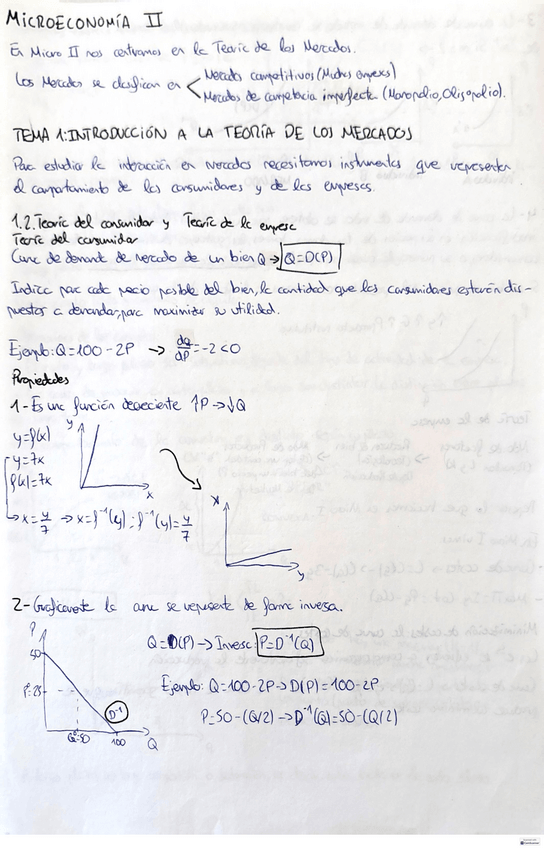 MICROECONOMÍA II
En Micro II nos centramos en la Teoría de los Mercados.
Los Mercados se clasifican en < Mercados competitivos (Muchas empresas)
Mercados de competencia imperfecta (Monopolio, Oligopolio).
TEMA 1: INTRODUCCIÓN A LA TEORÍA DE LOS MERCADOS
Para estudiar la interacción en mercados necesitamos instrumentos que representen
el comportamiento de los consumidores y de las empresas.
1.2. Teoría del consumidor y Teoría de la empresa
Teoría del consumidor
Curva de demanda de mercado de un bien Q → Q=D(P)
Indica para cada precio posible del bien, la cantidad que los consumidores estarán dis-
puestos a demandar, para maximizar su utilidad.
Ejemplo: Q=100-2P → dQ/dP = -2<0
Propiedades
1- Es una función decreciente ↑P → ↓Q
y=f(x)
y=7x
f(x)=7x
y
x
x=y/7 → x=f⁻¹(y); f⁻¹(y)=y/7
x
y
2- Gráficamente la curva se representa de forma inversa.
P
50
P=25
D⁻¹
Q=50
100
Q
Q=D(P) → Inversa: P=D⁻¹(Q)
Ejemplo: Q=100-2P → D(P)=100-2P
P=50-(Q/2) → D⁻¹(Q)=50-(Q/2)